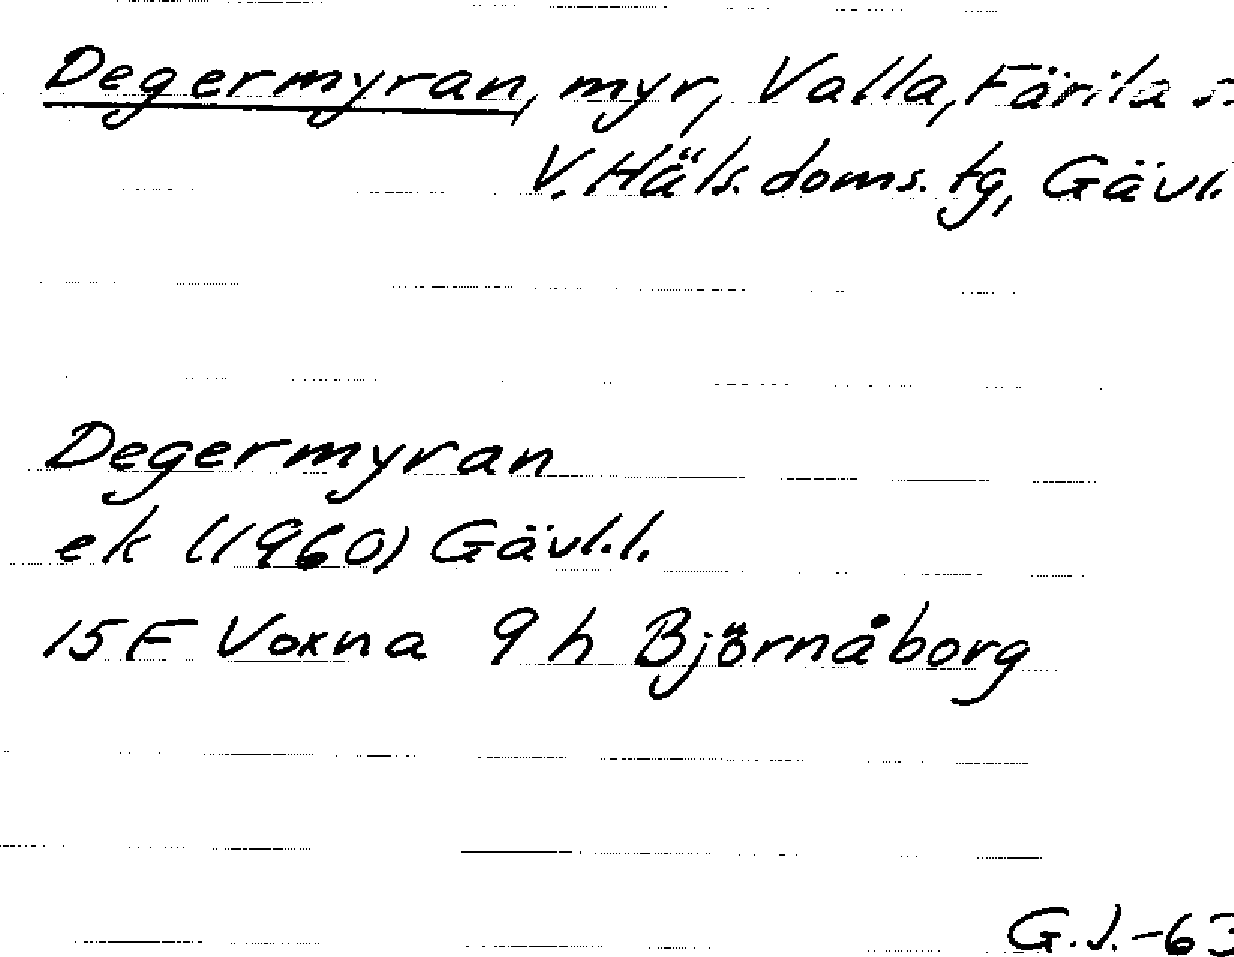 Degermyran, myr, Valla, Färila s.
V. Häls. doms. tg, Gävl.
Degermyran
ek (1960) Gävl.l.
15 F Voxna 9 h Björnåborg
G.J.-63